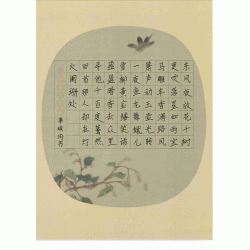 东风夜放花千树
更吹落星如雨宝
马雕车香满路凤
箫声动玉壶光转
一夜鱼龙舞蛾儿
雪柳黄金缕笑语
盈盈暗香去众里
寻他千百度蓦然
回首那人却在灯
火阑珊处